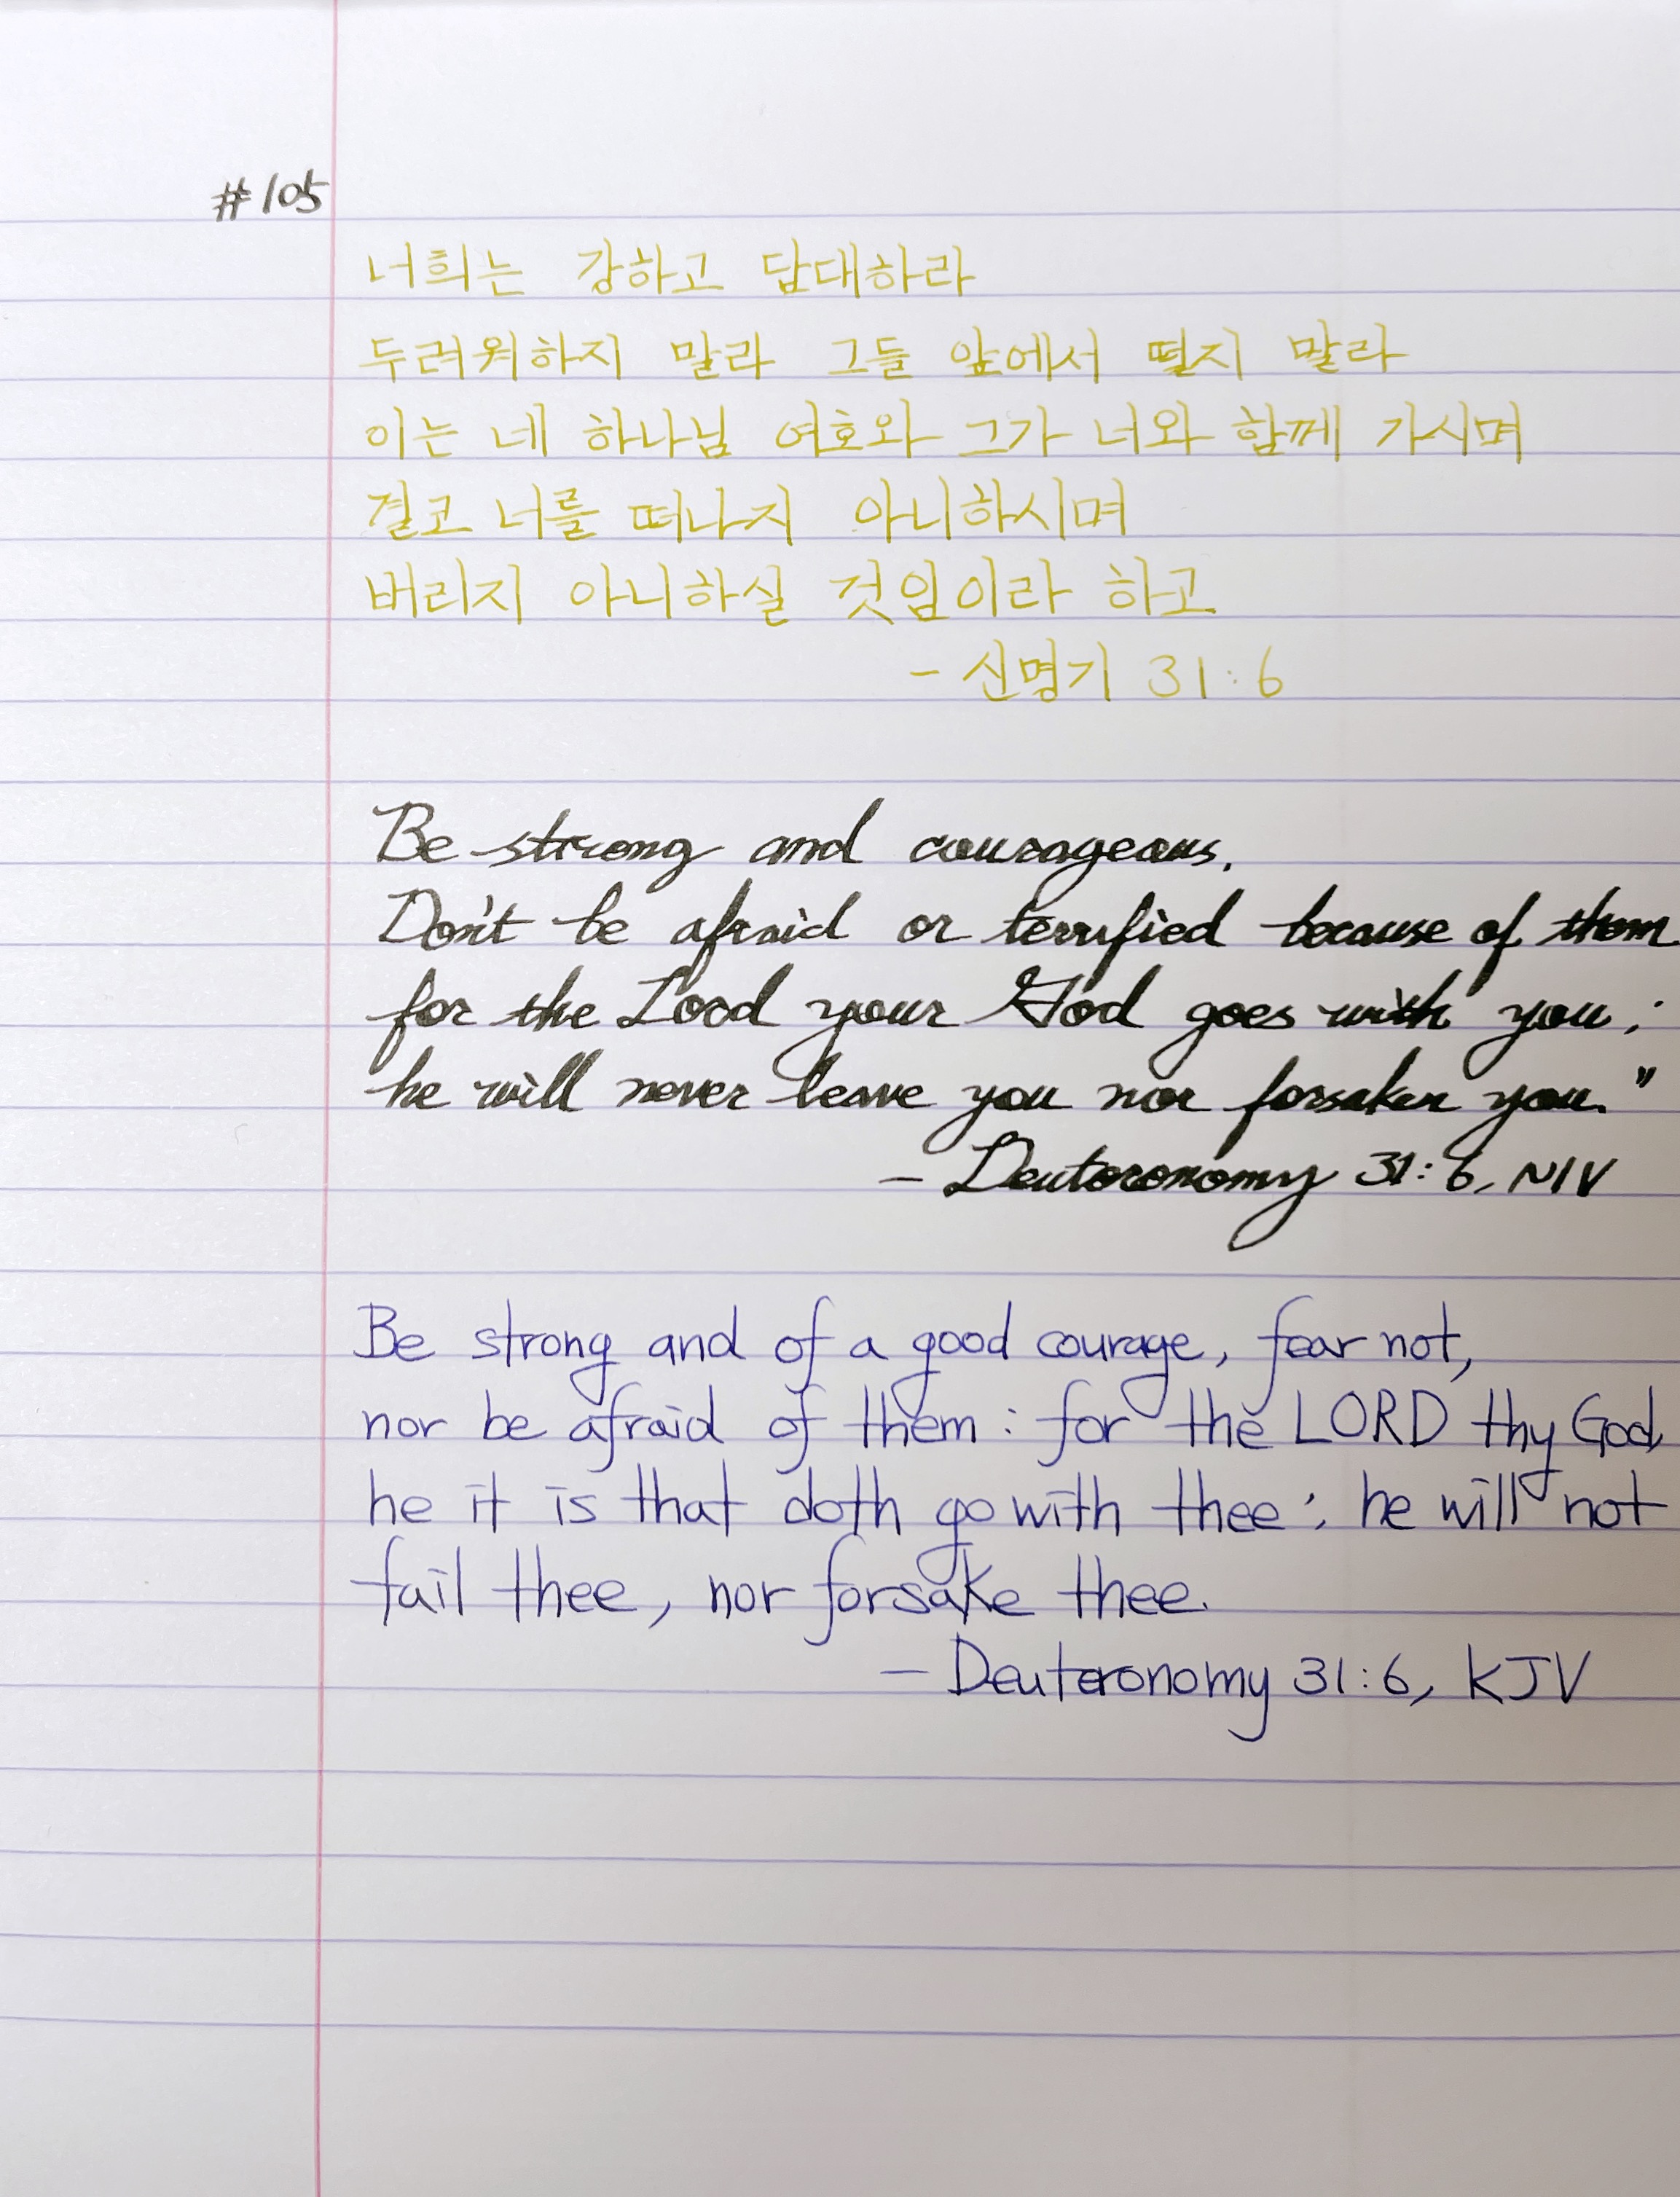 #105
너희는 강하고 담대하라
두려워하지 말라 그들 앞에서 떨지 말라
이는 네 하나님 여호와 그가 너와 함께 가시며
결코 너를 떠나지 아니하시며
버리지 아니하실 것임이라 하고
- 신명기 31:6
Be strong and courageous.
Don't be afraid or terrified because of them
for the Lord your God goes with you;
he will never leave you nor forsaken you."
- Deuteronomy 31:6, NIV
Be strong and of a good courage, fear not,
nor be afraid of them: for the LORD thy God,
he it is that doth go with thee; he will not
fail thee, nor forsake thee.
- Deuteronomy 31:6, KJV